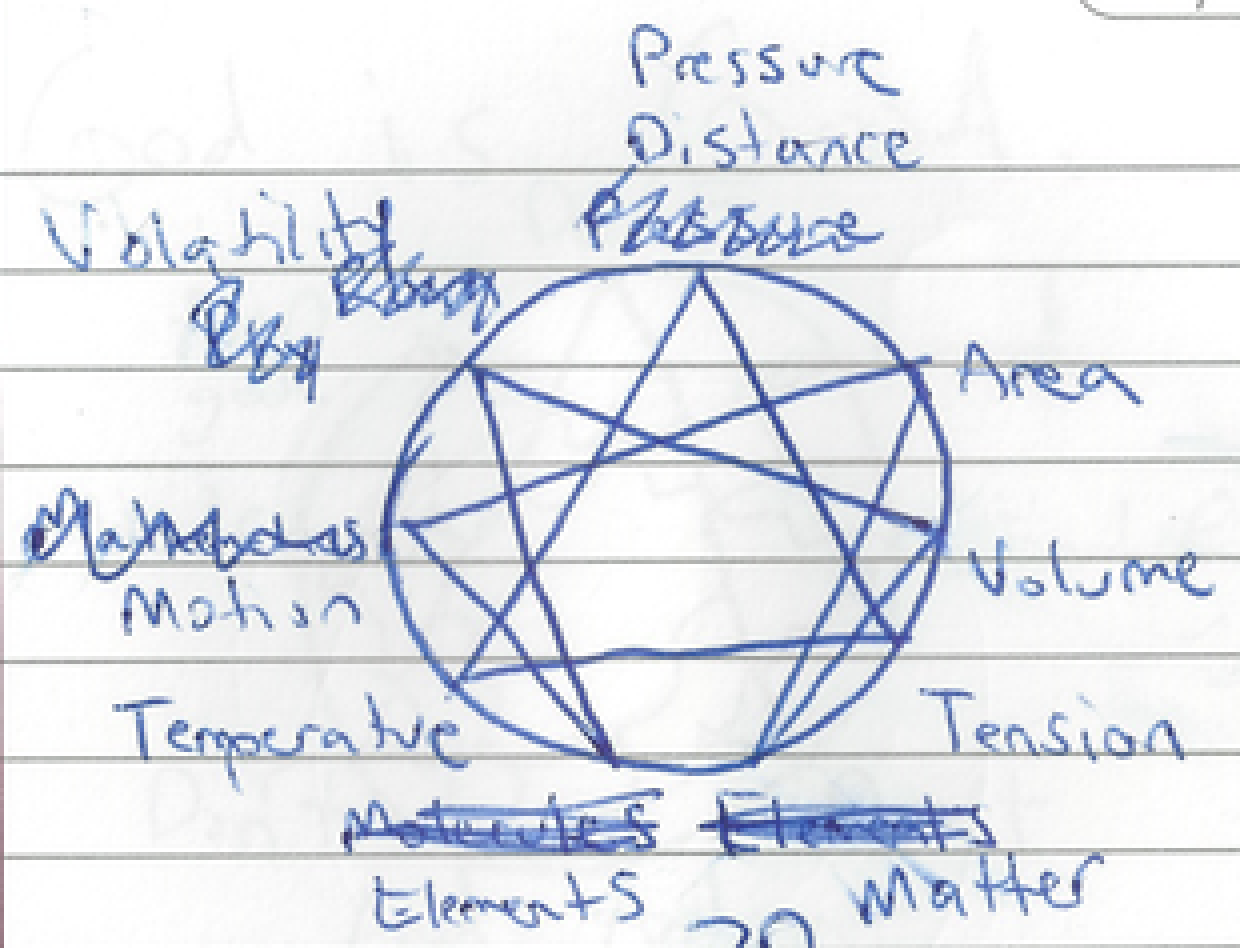 Pressure
Distance
Volatility
Area
Motion
Volume
Temperature
Tension
Molecules Elements
Elements Matter